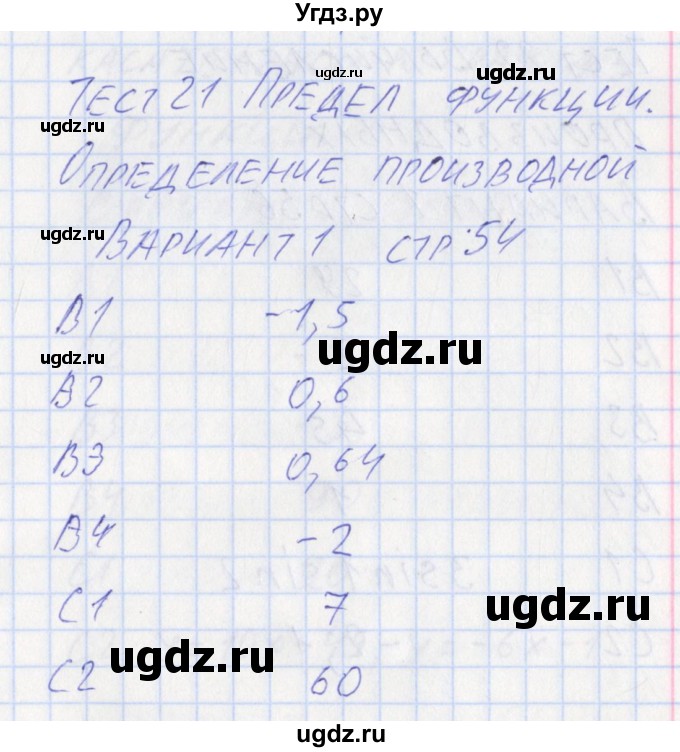 Угдз.ру
ugdz.ru
Тест 21 Предел функции.
ugdz.ru
Определение производной
ugdz.ru
Вариант 1 стр. 54
ugdz.ru
В1 -1,5
ugdz.ru
ugdz.ru
В2 0,6
В3 0,64
В4 -2
С1 7
ugdz.ru
ugdz.ru
С2 60
ugdz.ru